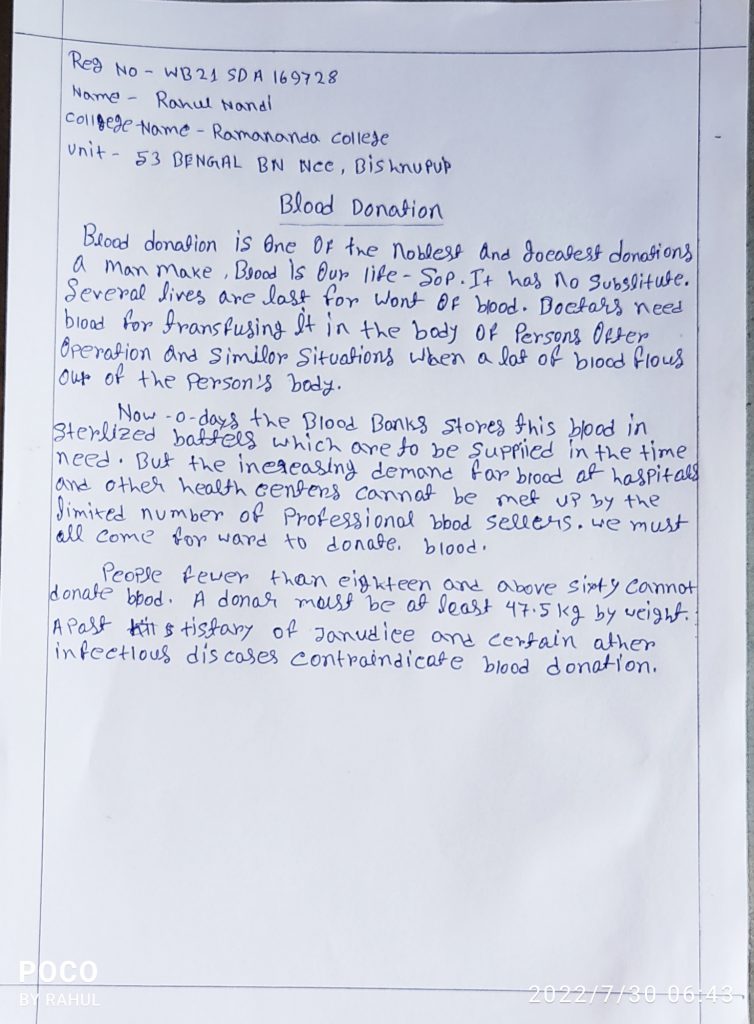 Reg No - WB21 SDA 169728
Name - Rahul Nandi
College Name - Ramananda College
Unit - 53 BENGAL BN NCC, Bishnupur
Blood Donation
Blood donation is One Of the Noblest And greatest donations
a man make. Blood Is Our life - Sop. It has no Substitute.
Several lives are last for wont Of blood. Doctars need
blood for transfusing It in the body Of Persons Ofter
Operation And Similor Situations when a lot of blood flows
Out of the Person's body.
Now -a-days the Blood Banks stores this blood in
Sterlized battels which are to be Supplied in the time
need. But the increasing demand far blood at haspitals
and other health centers cannat be met up by the
limited number of Professional blood sellers. we must
all come for ward to donate. blood.
People fewer than eighteen and above sixty cannot
donate blood. A donar must be at least 47.5 kg by weight.
A Past of Janudice and certain ather
infectious discases contraindicate blood donation.
POCO
BY RAHUL
2022/7/30 06:43